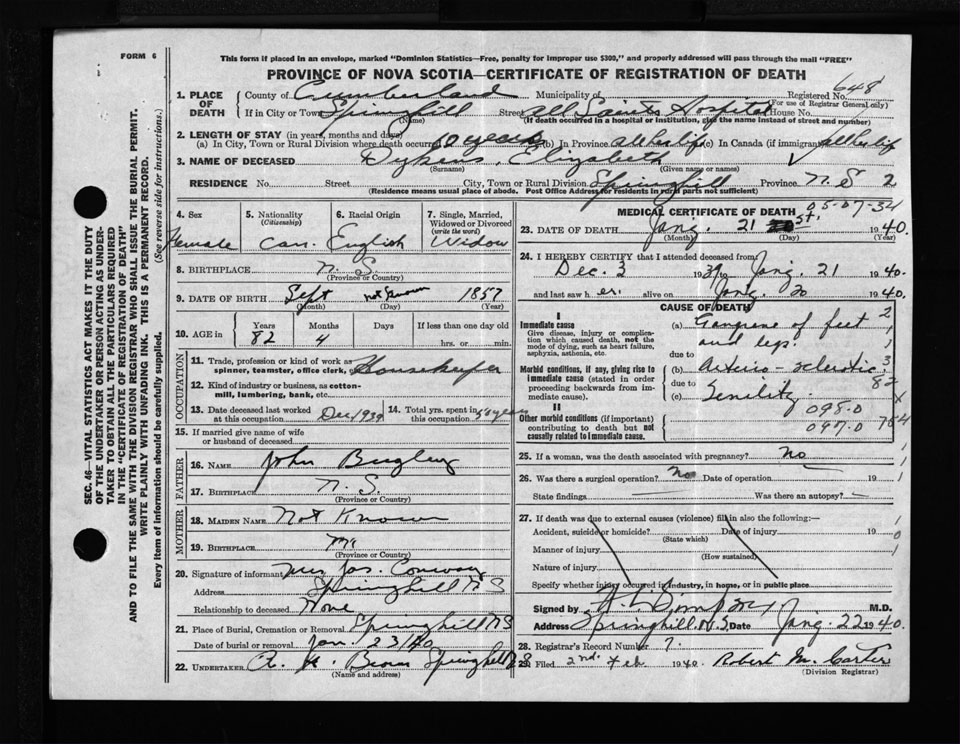 FORM 6
This form if placed in an envelope, marked "Dominion Statistics—Free, penalty for improper use $300," and properly addressed will pass through the mail "FREE"
PROVINCE OF NOVA SCOTIA—CERTIFICATE OF REGISTRATION OF DEATH
SEC. 46—VITAL STATISTICS ACT MAKES IT THE DUTY
OF THE UNDERTAKER OR PERSON ACTING AS UNDER-
TAKER TO OBTAIN ALL THE PARTICULARS REQUIRED
IN THE "CERTIFICATE OF REGISTRATION OF DEATH"
AND TO FILE THE SAME WITH THE DIVISION REGISTRAR WHO SHALL ISSUE THE BURIAL PERMIT.
WRITE PLAINLY WITH UNFADING INK. THIS IS A PERMANENT RECORD.
Every item of information should be carefully supplied. (See reverse side for instructions.)
1. PLACE OF DEATH County of Cumberland Municipality of Registered No. 648
(For use of Registrar General only)
If in City or Town Springhill Street All Saints Hospital House No.
(Name) (If death occurred in a hospital or institution, give the name instead of street and number)
2. LENGTH OF STAY (in years, months and days)
(a) In City, Town or Rural Division where death occurred years (b) In Province all her life (c) In Canada (if immigrant) all her life
3. NAME OF DECEASED Dykens, Elizabeth
(Surname) (Given name or names)
RESIDENCE No. Street City, Town or Rural Division Springhill Province N.S 2
(Residence means usual place of abode. Post Office Address for Residents in rural parts not sufficient)
4. Sex Female
5. Nationality (Citizenship) Can.
6. Racial Origin English
7. Single, Married, Widowed or Divorced (write the word) Widow
8. BIRTHPLACE N. S.
(Province or Country)
9. DATE OF BIRTH Sept not known 1857
(Month) (Day) (Year)
10. AGE in Years 82 Months 4 Days If less than one day old hrs. or min.
OCCUPATION
11. Trade, profession or kind of work as spinner, teamster, office clerk, etc. Housekeeper
12. Kind of industry or business, as cotton-mill, lumbering, bank, etc.
13. Date deceased last worked at this occupation Dec 1939
14. Total yrs. spent in this occupation years
15. If married give name of wife or husband of deceased
FATHER
16. NAME John
17. BIRTHPLACE N. S.
(Province or Country)
MOTHER
18. MAIDEN NAME Not Known
19. BIRTHPLACE
(Province or Country)
20. Signature of informant Mrs Jas. Conway
Address Springhill N S
Relationship to deceased None
21. Place of Burial, Cremation or Removal Springhill NS
Date of burial or removal Jan. 23/40
22. UNDERTAKER A. H. Brown Springhill NS
(Name and address)
MEDICAL CERTIFICATE OF DEATH 05-07-34
23. DATE OF DEATH Jany. 21 st. 1940.
(Month) (Day) (Year)
24. I HEREBY CERTIFY that I attended deceased from
Dec. 3 1939 to Jany. 21 1940.
and last saw her. alive on Jany. 20 1940.
CAUSE OF DEATH
I
Immediate cause
Give disease, injury or complication which caused death, not the mode of dying, such as heart failure, asphyxia, asthenia, etc.
(a) Gangrene of feet and legs. 2
due to
Morbid conditions, if any, giving rise to immediate cause (stated in order proceeding backwards from immediate cause).
(b) Arterio-sclerotic 3
due to 82
(c) Senility. X
II
Other morbid conditions (if important) contributing to death but not causally related to immediate cause.
095.0
097.0 764
25. If a woman, was the death associated with pregnancy? No
26. Was there a surgical operation? No Date of operation 19
State findings Was there an autopsy? —
27. If death was due to external causes (violence) fill in also the following:—
Accident, suicide or homicide? Date of injury 19
(State which)
Manner of injury
(How sustained)
Nature of injury
Specify whether injury occurred in industry, in home, or in public place
Signed by M.D.
Address Springhill, N.S. Date Jany. 22 1940.
28. Registrar's Record Number 7.
29. Filed 2nd. Feb 1940. Robert M. Carter
(Division Registrar)